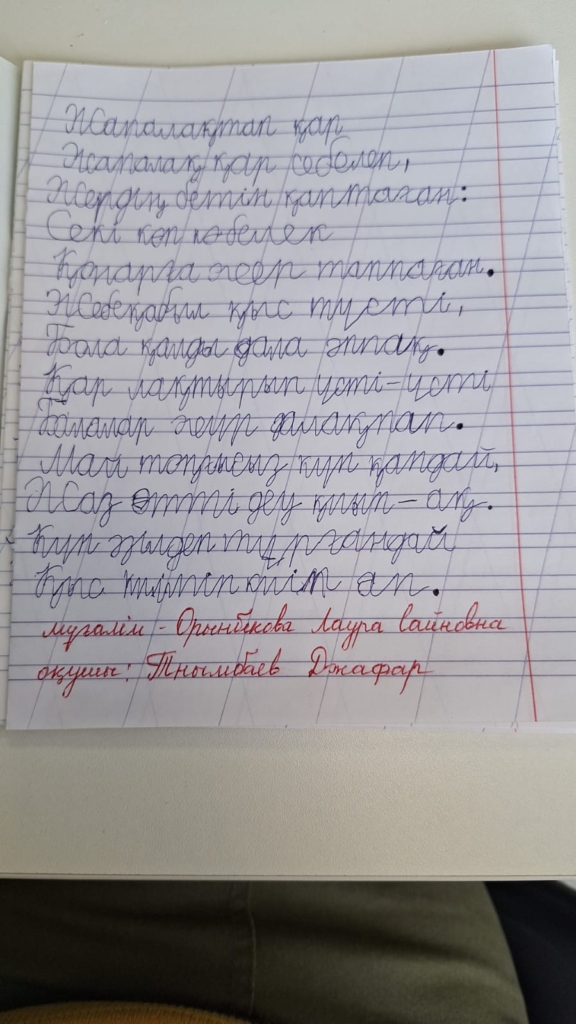 Жапалақтап қар
Жапалақ қар себелеп,
Жердің бетін қаптаған:
Секі көп көбелек
Қонарға жер таппаған.
Жебеқабыл қыс түсті,
Бола қалды дала аппақ.
Қар лақтырып үсті-үсті
Балалар жүр далақтап.
Май тоңғысыз күн қандай,
Жаз өтті деу қиын-ақ.
Күн әзілдеп тұрғандай
Қыс киімін киіп ап.
мұғалім - Орынбекова Лаура Сайновна
оқушы: Тнымбаев Джафар